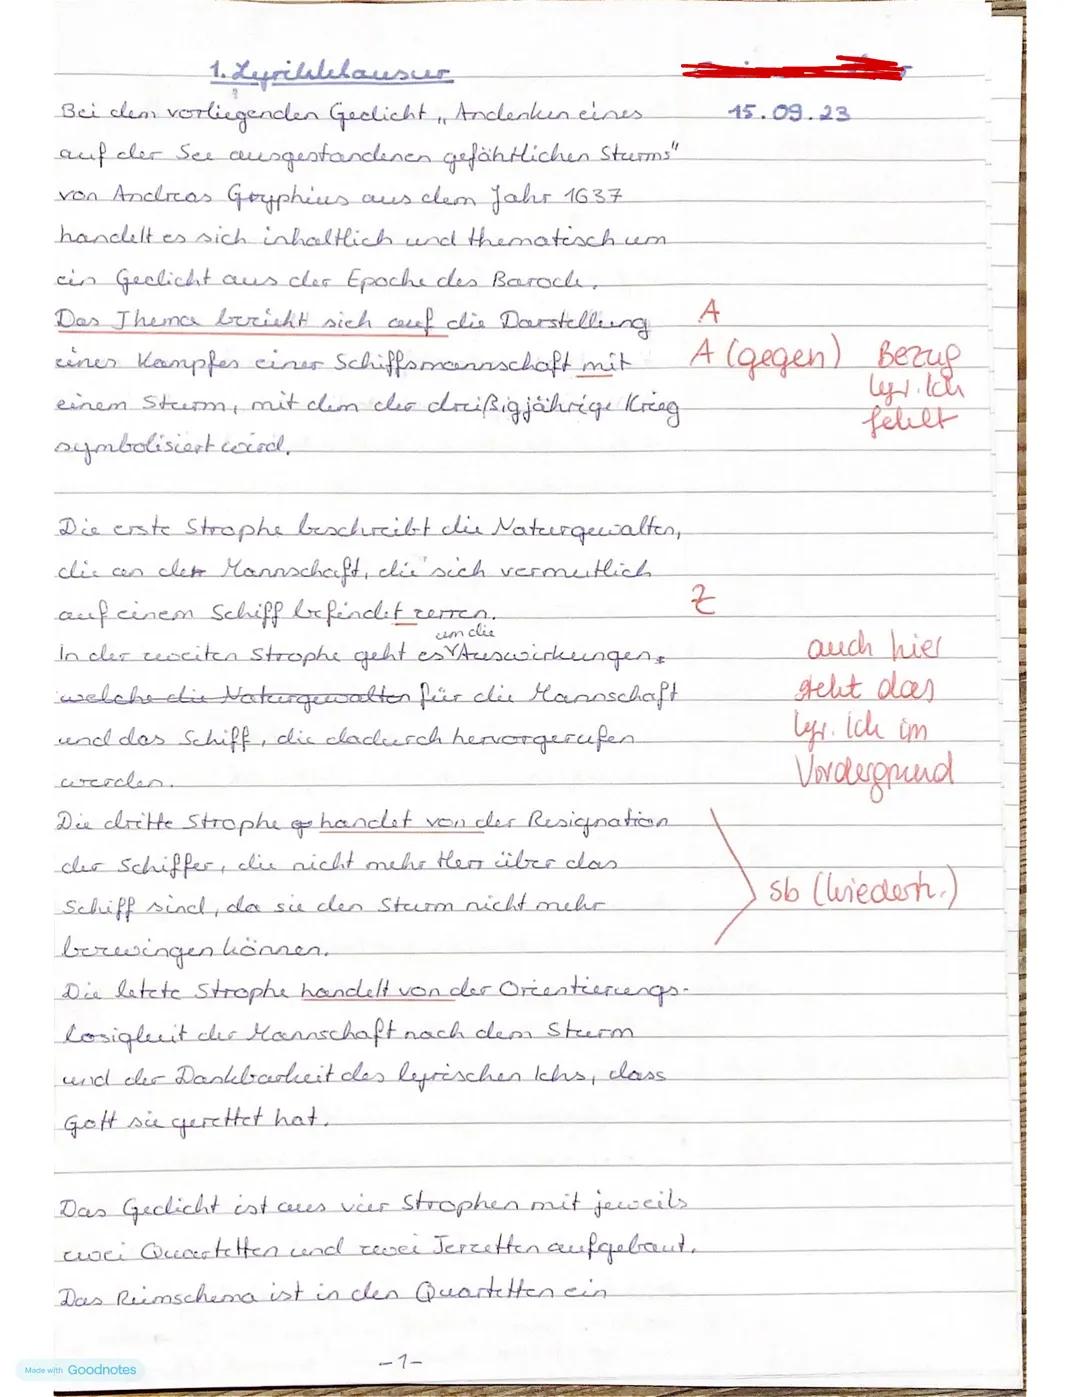 1. Lyrikklausur
Bei dem vorliegenden Gedicht „Andenken eines
15.09.23
auf der See ausgestandenen gefährlichen Sturms"
von Andreas Gryphius aus dem Jahr 1637
handelt es sich inhaltlich und thematisch um
ein Gedicht aus der Epoche des Barock.
Das Thema bezieht sich auf die Darstellung
A
eines Kampfes einer Schiffsmannschaft mit
A (gegen)
Bezug
lyr. Ich
fehlt
einem Sturm, mit dem der dreißigjährige Krieg
symbolisiert wird.
Die erste Strophe beschreibt die Naturgewalten,
die an der Mannschaft, die sich vermutlich
auf einem Schiff befindet zerren.
Z
um die
In der zweiten Strophe geht es Auswirkungen,
welche die Naturgewalten für die Mannschaft
und das Schiff, die dadurch hervorgerufen
werden.
auch hier
steht das
lyr. Ich im
Vordergrund
Die dritte Strophe handet von der Resignation
der Schiffer, die nicht mehr Herr über das
Schiff sind, da sie den Sturm nicht mehr
bezwingen können.
Sb (Wiederh.)
Die letzte Strophe handelt von der Orientierungs-
losigkeit der Mannschaft nach dem Sturm
und der Dankbarkeit des lyrischen Ichs, dass
Gott sie gerettet hat.
Das Gedicht ist aus vier Strophen mit jeweils
zwei Quartetten und zwei Terzetten aufgebaut.
Das Reimschema ist in den Quartetten ein
-1-
Made with Goodnotes